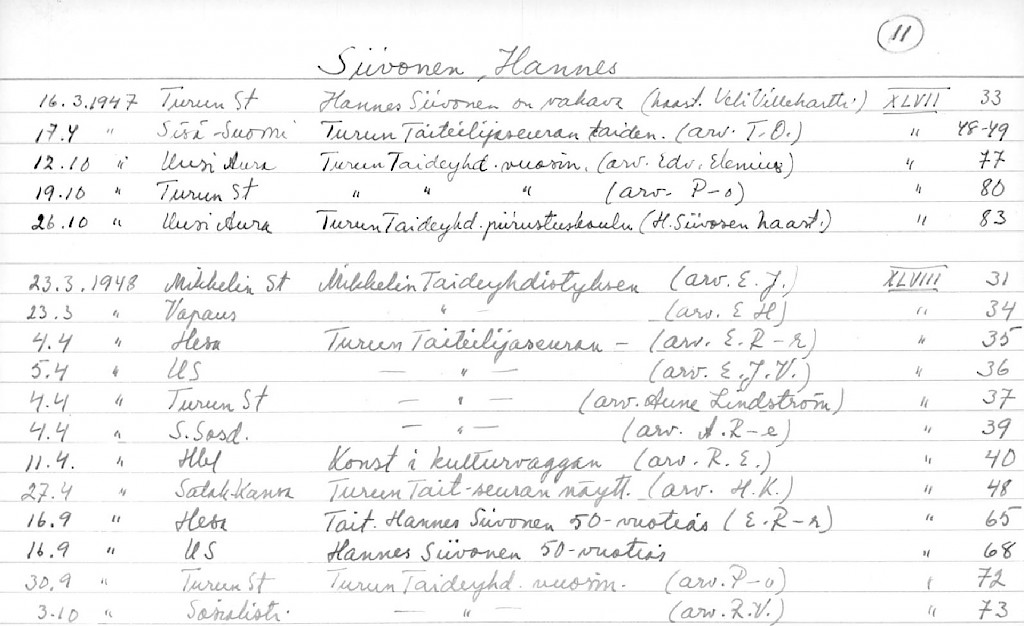 11
Siivonen, Hannes
16.3.1947 Turun St Hannes Siivonen on vakava (haast. Veli Villehartti) XLVII 33
17.4 " Sisä-Suomi Turun Taiteilijaseuran taiden. (arv. T.O.) " 48-49
12.10 " Uusi Aura Turun Taideyhd. vuosin. (arv. Edv. Elenius) " 77
19.10 " Turun St " " " (arv. P-o) " 80
26.10 " Uusi Aura Turun Taideyhd. piirustuskoulu (H. Siivosen haast.) " 83
23.3.1948 Mikkelin St Mikkelin Taideyhdistyksen (arv. E.J.) XLVIII 31
23.3 " Vapaus " — (arv. E H) " 34
4.4 " Hesa Turun Taiteilijaseuran — (arv. E.R-r) " 35
5.4 " US — " — (arv. E.J.V.) " 36
4.4 " Turun St — " — (arv. Aune Lindström) " 37
4.4 " S.Sosd. — " — (arv. A.R-e) " 39
11.4. " Hbl Konst i kulturvaggan (arv. R.E.) " 40
27.4 " Satak-Kansa Turun Tait-seuran näytt. (arv. H.K.) " 48
16.9 " Hesa Tait. Hannes Siivonen 50-vuotias (E.R-r) " 65
16.9 " US Hannes Siivonen 50-vuotias " 68
30.9 " Turun St Turun Taideyhd. vuosin. (arv. P-o) " 72
3.10 " Sosialisti. — " — (arv. R.V.) " 73